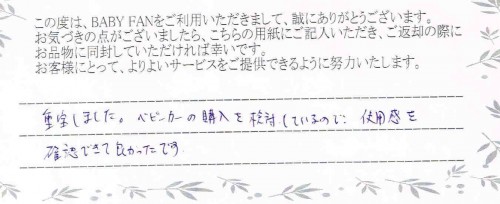 この度は、BABY FANをご利用いただきまして、誠にありがとうございます。
お気づきの点がございましたら、こちらの用紙にご記入いただき、ご返却の際に
お品物に同封していただければ幸いです。
お客様にとって、よりよいサービスをご提供できるように努力いたします。
重宝しました。ベビーカーの購入を検討しているので、使用感を
確認できて良かったです